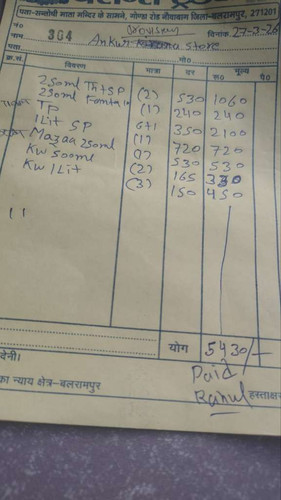 पता-सब्जी माता मन्दिर के सामने, गोण्डा रोड बलरामपुर जिला-बलरामपुर, 271201
नं० 304 दिनांक 27-3-26
नाम Ankur Kirana Store
पता मो०
क्र.सं. विवरण मात्रा दर मूल्य
रु० पै०
250ml Th+SP (2) 530 1060
250ml (1) 240 240
TP 6+1 350 2100
1Lit SP (1) 720 720
Mazaa 250ml (1) 530 530
KW 500ml (2) 165 330
KW 1Lit (3) 150 450
योग 5430/-
देनी।
Paid
का न्याय क्षेत्र-बलरामपुर
Rahul हस्ताक्षर